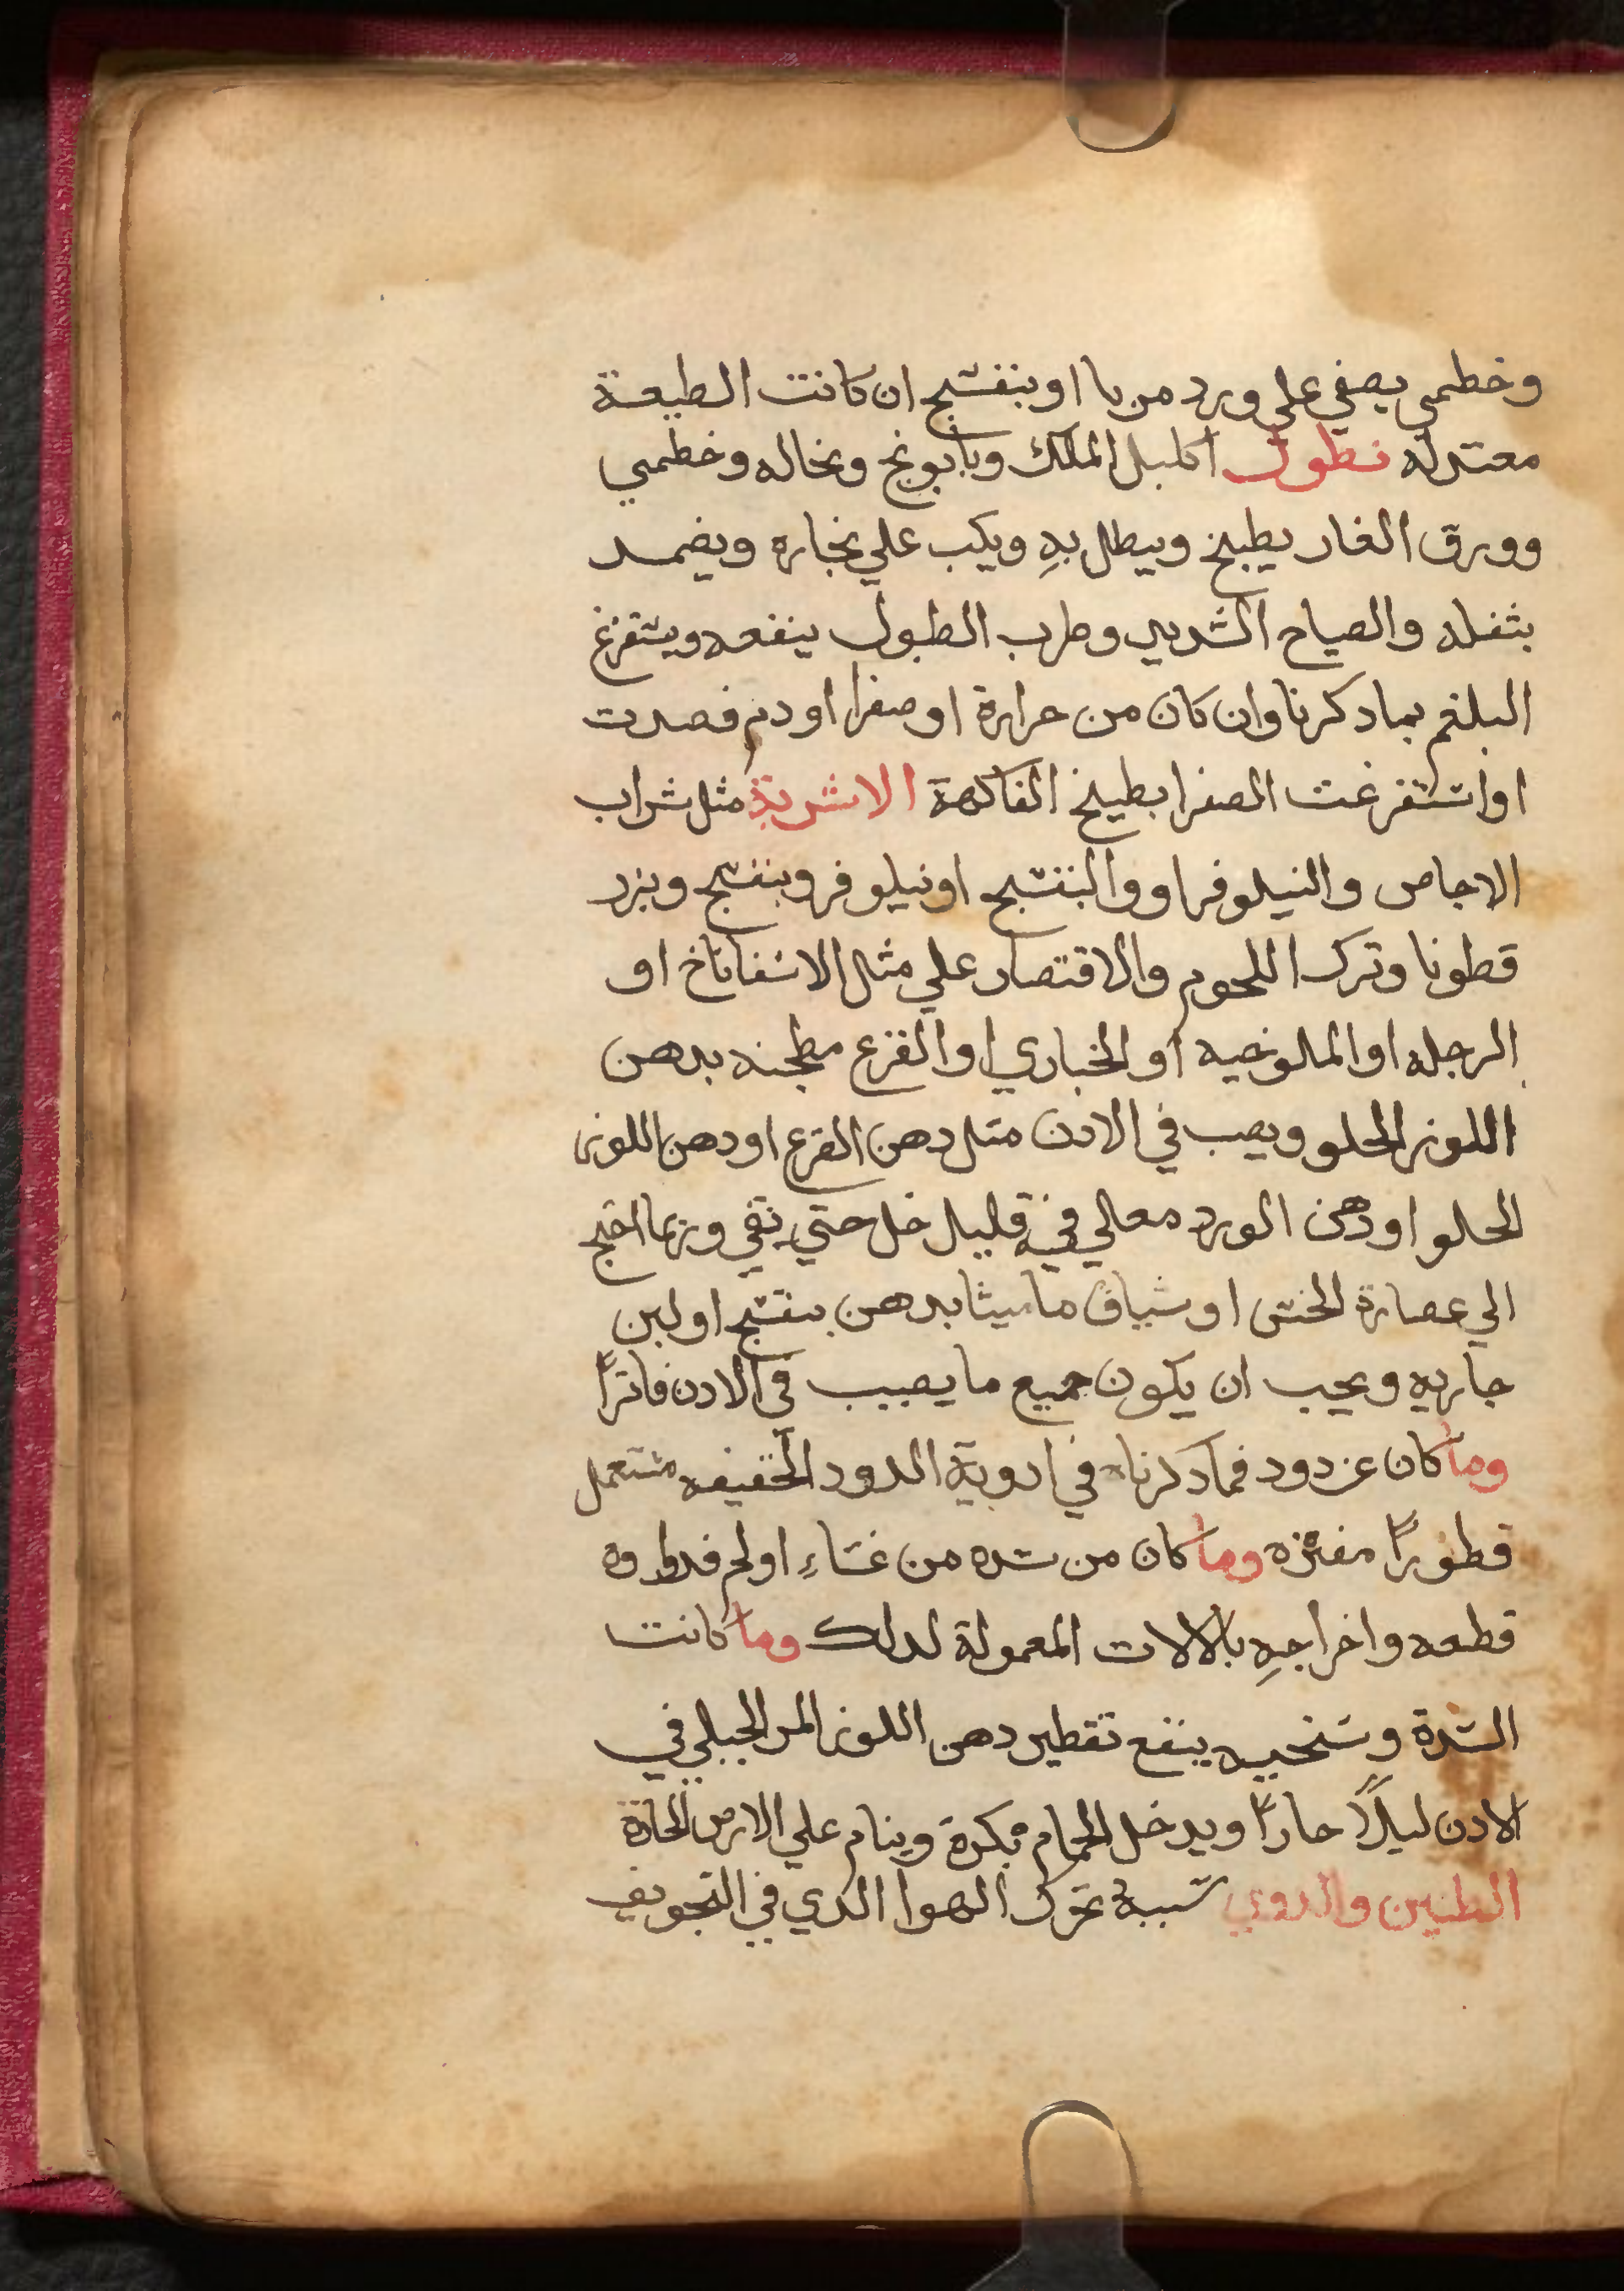 وخطمي يصفي على ورد مربا او بنفسج ان كانت الطبيعة
معتدله نطول اكليل الملك وبابونج ونخاله وخطمي
وورق الغار يطبخ وينطل بهِ ويكب علي بخاره ويضمد
بثفله والصياح الشديد وضرب الطبول ينفعه ويستفرغ
البلغم بما دكرنا وان كان من حرارة او صفرا او دم فصدت
او استفرغت الصفرا بطبيخ الفاكهة الاشربة مثل شراب
الاجاص والنيلوفر او والبنفسج او نيلوفر وبنفسج وبزر
قطونا وترك اللحوم والاقتصار علي مثل الاسفاناخ او
الرجله او الملوخيه او الخباري او القرع مطجنه بدهن
اللوز الحلو ويصب في الادن متل دهن القرع او دهن اللوز
الحلو او دهن الورد مغالي فيه قليل خل حتي يفي وربما احتج
الي عصارة الخس او شياف ماميثا بدهن بنفسج او لبن
جاريه ويجب ان يكون جميع ما يصب في الادن فاترًا
وما كان عن دود فما دكرناه في ادوية الدود الخفيفه مستعمل
قطورًا مفتره وما كان من سده من غشاءِ او لحم فدواوه
قطعه واخراجهِ بالالات المعمولة لدلك وما كانت
السدة وسخيه ينفع تقطير دهن اللوز المر الجبلي في
الادن ليلاً حارًا ويدخل الحمام بكرة وينام علي الارض الحارة
الطنين والدوي سببهُ تحرك الهوا الدي في التجويف